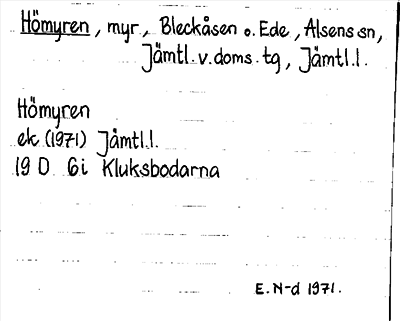 Hömyren, myr, Bleckåsen o. Ede, Alsens sn,
Jämtl. v. doms. tg, Jämtl. l.
Hömyren
ek (1971) Jämtl. l.
19 D 6i Kluksbodarna
E. N-d 1971.